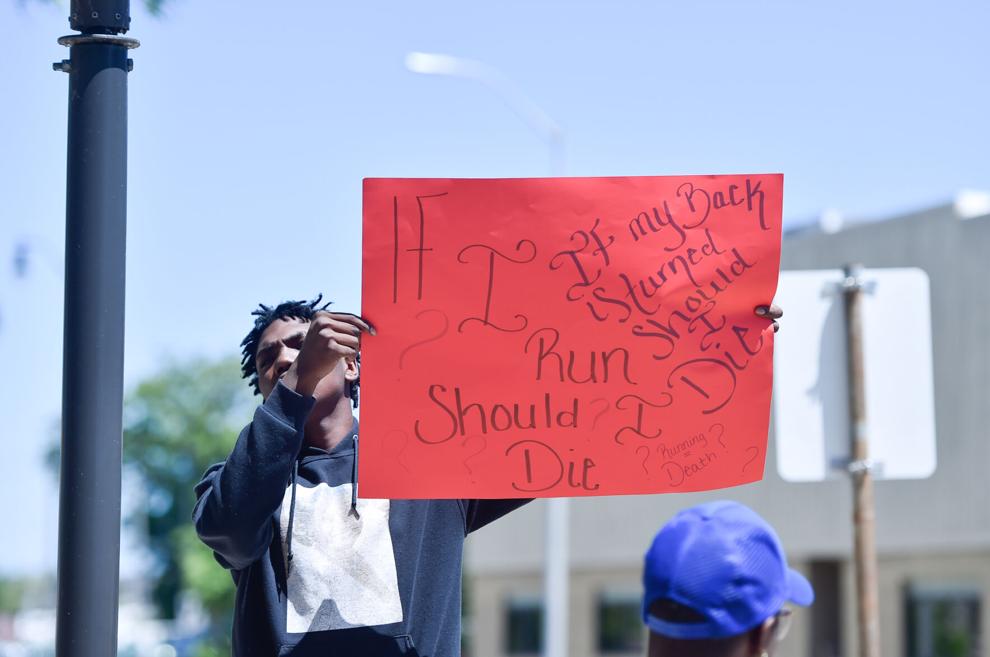 IF
I
Run
Should I
Die
If my Back
is turned
Should
I
Die
? ? ? ? ? ?
Running
=
Death?